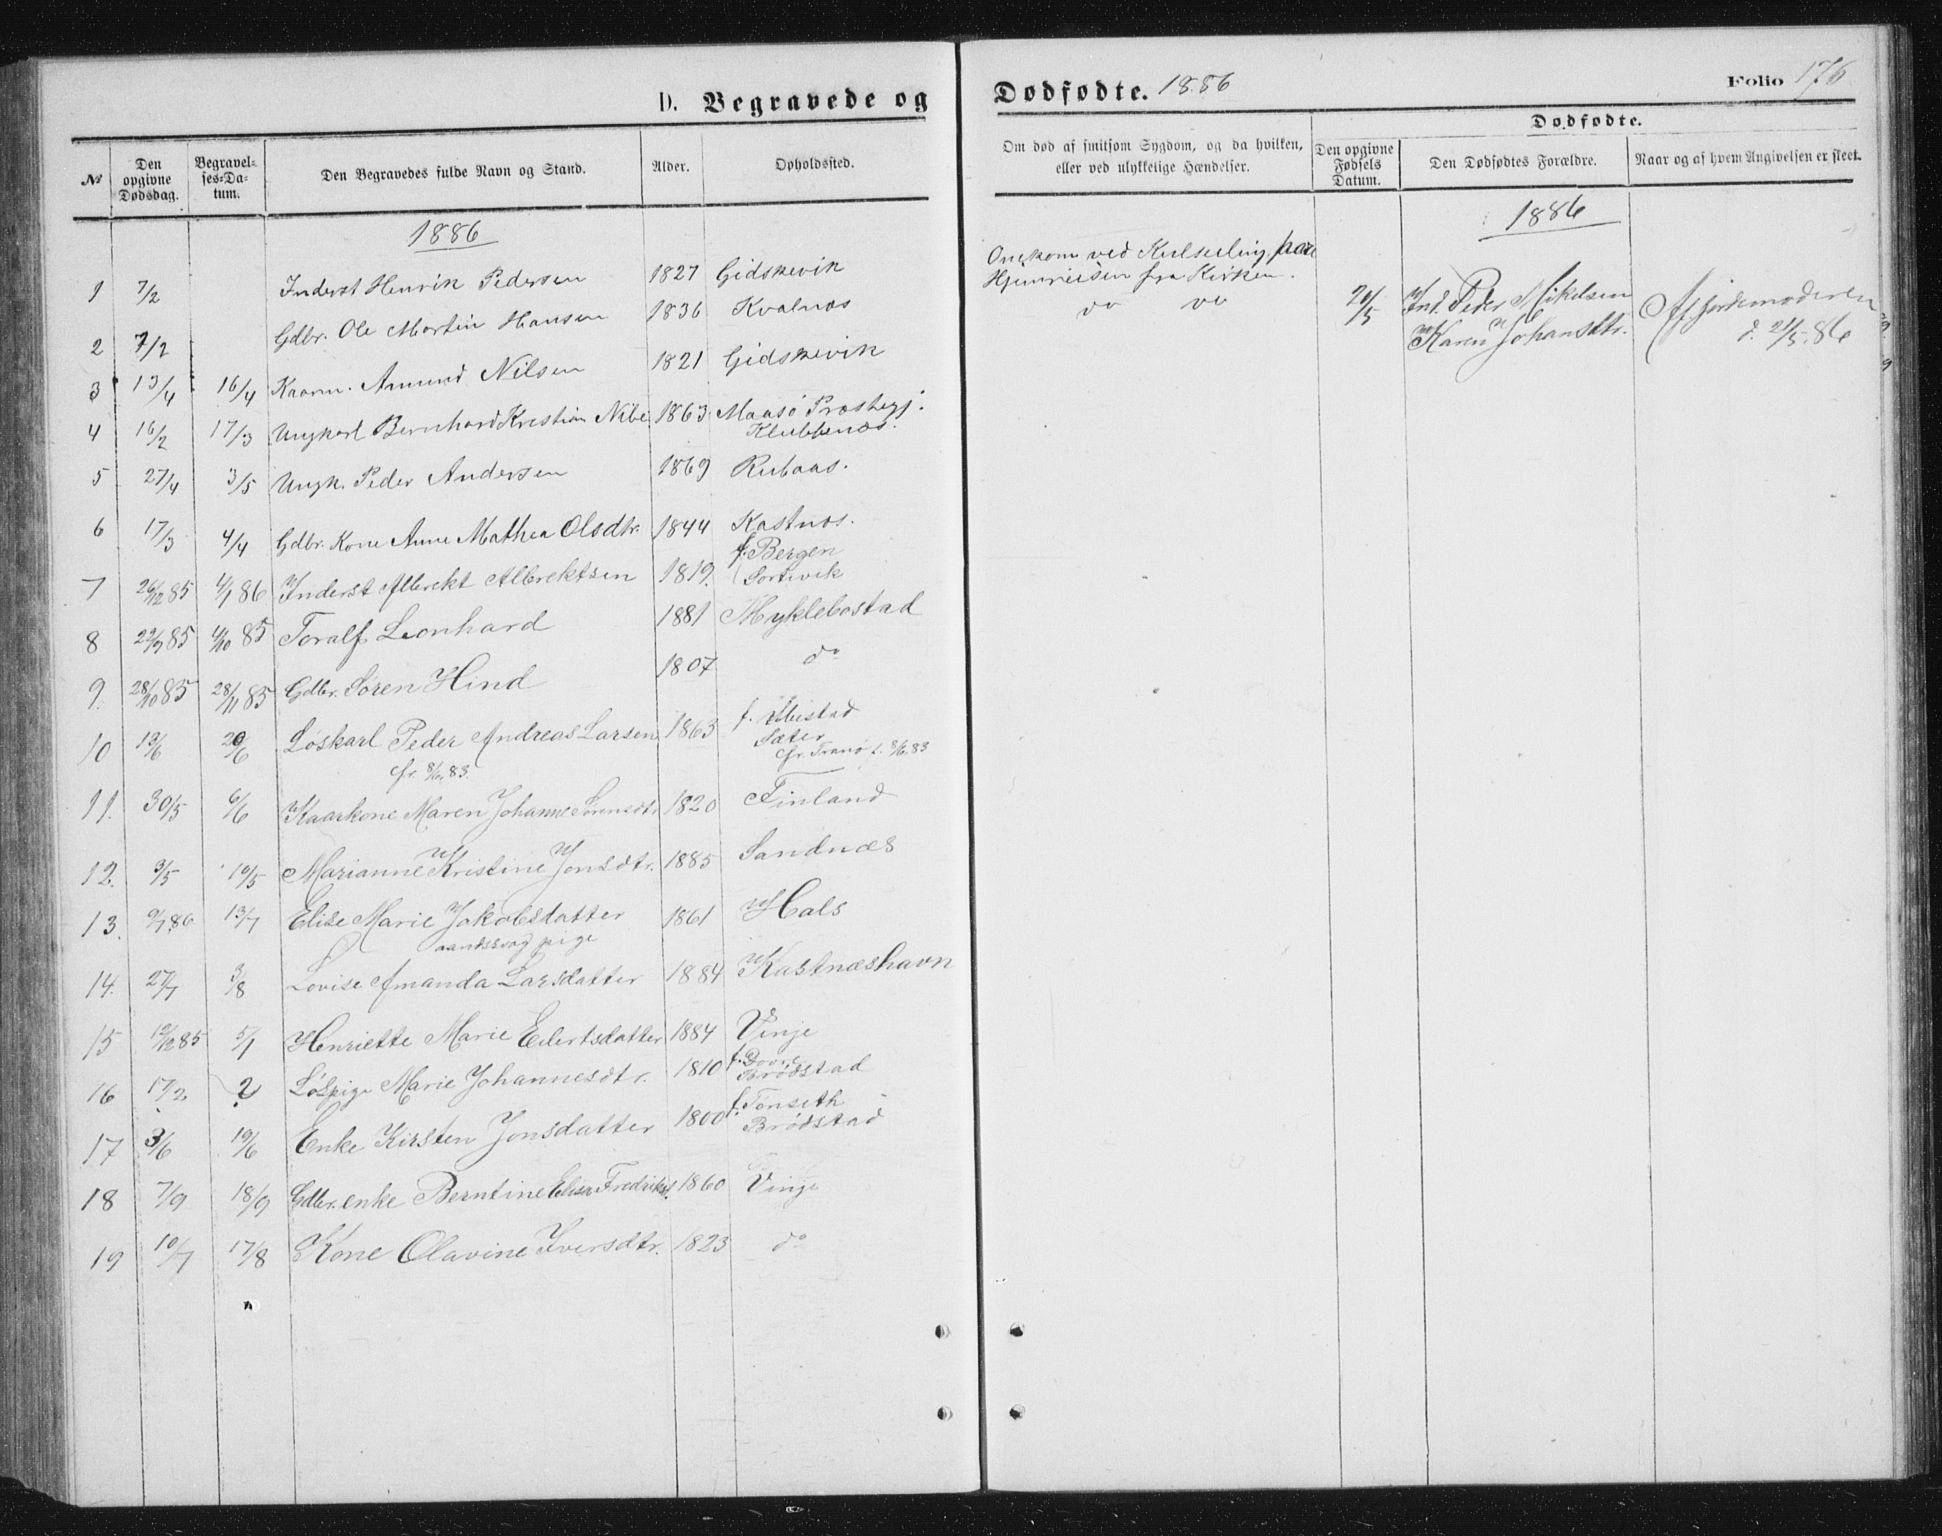 D. Begravede og
Dødfødte. 1886
Folio 176
№
Den opgivne Dødsdag.
Begravelses-Datum.
Den Begravedes fulde Navn og Stand.
Alder.
Opholdssted.
Om død af smitsom Sygdom, og da hvilken, eller ved ulykkelige Hændelser.
Dødfødte.
Den opgivne Fødsels Datum.
Den Dødfødtes Forældre.
Naar og af hvem Angivelsen er skeet.
1886
1 7/2 Inderst Henrik Pedersen 1827 Gidskevik
2 7/2 Gdbr. Ole Martin Hansen 1836 Kvalnæs
3 13/4 16/4 Kaarm. Amund Nilsen 1821 Gidskevik
4 16/2 17/3 Ungkarl Bernhard Kristian Nibe 1863 Maasø Præstegj.
Klubbenæs.
5 27/4 3/5 Ungk. Peder Andersen 1869 Rubaas.
6 17/3 4/4 Gdbr. Kone Anne Mathea Olsdtr. 1844 Kastnæs.
f. Bergen
7 26/12 85 4/1 86 Inderst Albrekt Albrektsen 1819. Sortevik
8 22/9 85 4/10 85 Toralf Leonhard 1881 Myklebostad
9. 28/10 85 28/11 85 Gdbr. Søren Hind 1807 do
10 13/6 20/6 Løskarl Peder Andreas Larsen 1863 f. Ibestad
Sæter
cfr. 8/6 83. cfr. Tranø 8/6 83
11. 30/5 6/6 Kaarkone Maren Johanne Sørensdtr 1820 Finland
12. 3/5 10/5 Marianne Kristine Jonsdtr. 1885 Sandnæs
13. 9/7 86 13/7 Elise Marie Jakobsdatter 1861 Hals
aandssvag pige
14. 27/7 3/8 Lovise Amanda Larsdatter 1884 Kastnæshavn
15 12/12 85 5/1 Henriette Marie Eilertsdatter 1884 Vinje
16 17/2 ? Løspige Marie Johannesdtr. 1810 f. Dovre
Brødstad
17 3/6 19/6 Enke Kirsten Jonsdatter 1800 f. Tønseth
Brødstad
18 7/9 18/9 Gdbr. enke Berntine Elisa Fredriksd. 1860 Vinje
19 10/7 17/8 Kone Olavine Iversdtr. 1823 do
Omkom ved Kulseiling paa
Hjemreisen fra Kirken.
do do
1886
20/5 Ind. Peder Mikelsen
Karen Johansdtr.
Af jordemoderen
d. 21/5 86